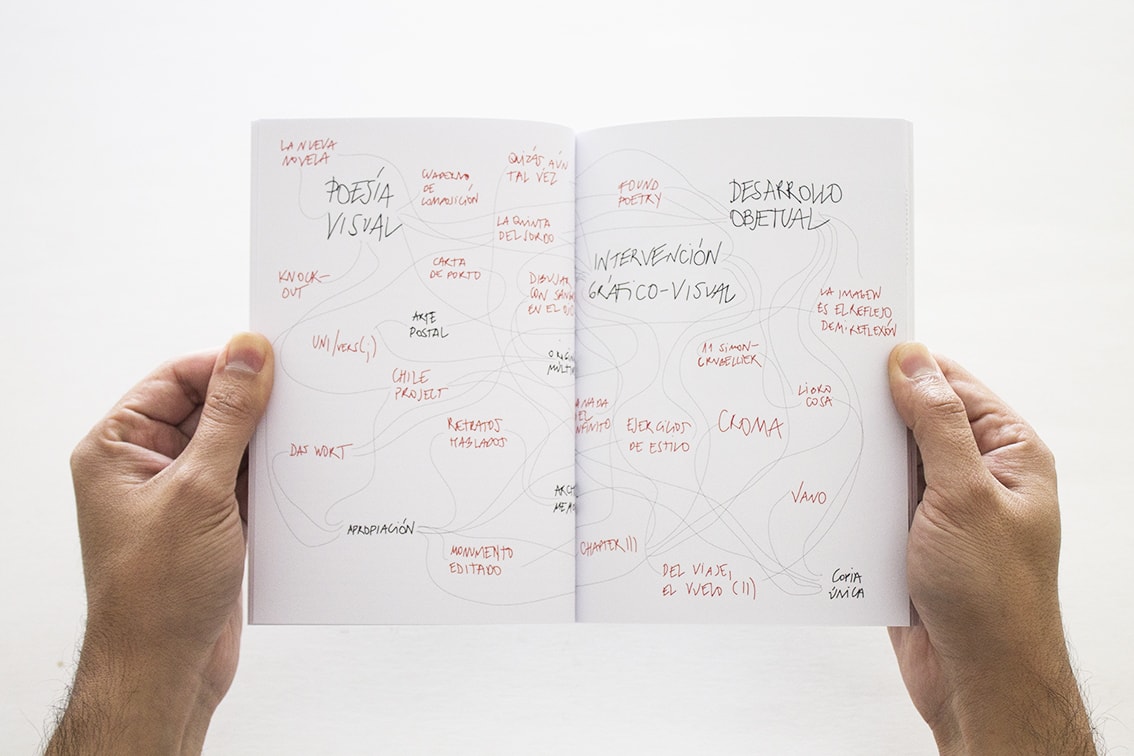 LA NUEVA
NOVELA
POESÍA
VISUAL
CUADERNO
DE
COMPOSICIÓN
QUIZÁS AÚN
TAL VEZ
LA QUINTA
DEL SORDO
KNOCK-
OUT
CARTA
DE PORTO
DIBUJAR
CON
EN EL
ARTE
POSTAL
UNI/VERS(;)
CHILE
PROJECT
RETRATOS
HABLADOS
DAS WORT
APROPIACIÓN
MONUMENTO
EDITADO
FOUND
POETRY
DESARROLLO
OBJETUAL
INTERVENCIÓN
GRÁFICO-VISUAL
LA IMAGEN
ES EL REFLEJO
DE MI REFLEXIÓN
11 SIMON-
CRUBELLIER
LIBRO
COSA
NADA
EL
EJERCICIOS
DE ESTILO
CROMA
VANO
CHAPTER III
DEL VIAJE,
EL VUELO (II)
COPIA
ÚNICA